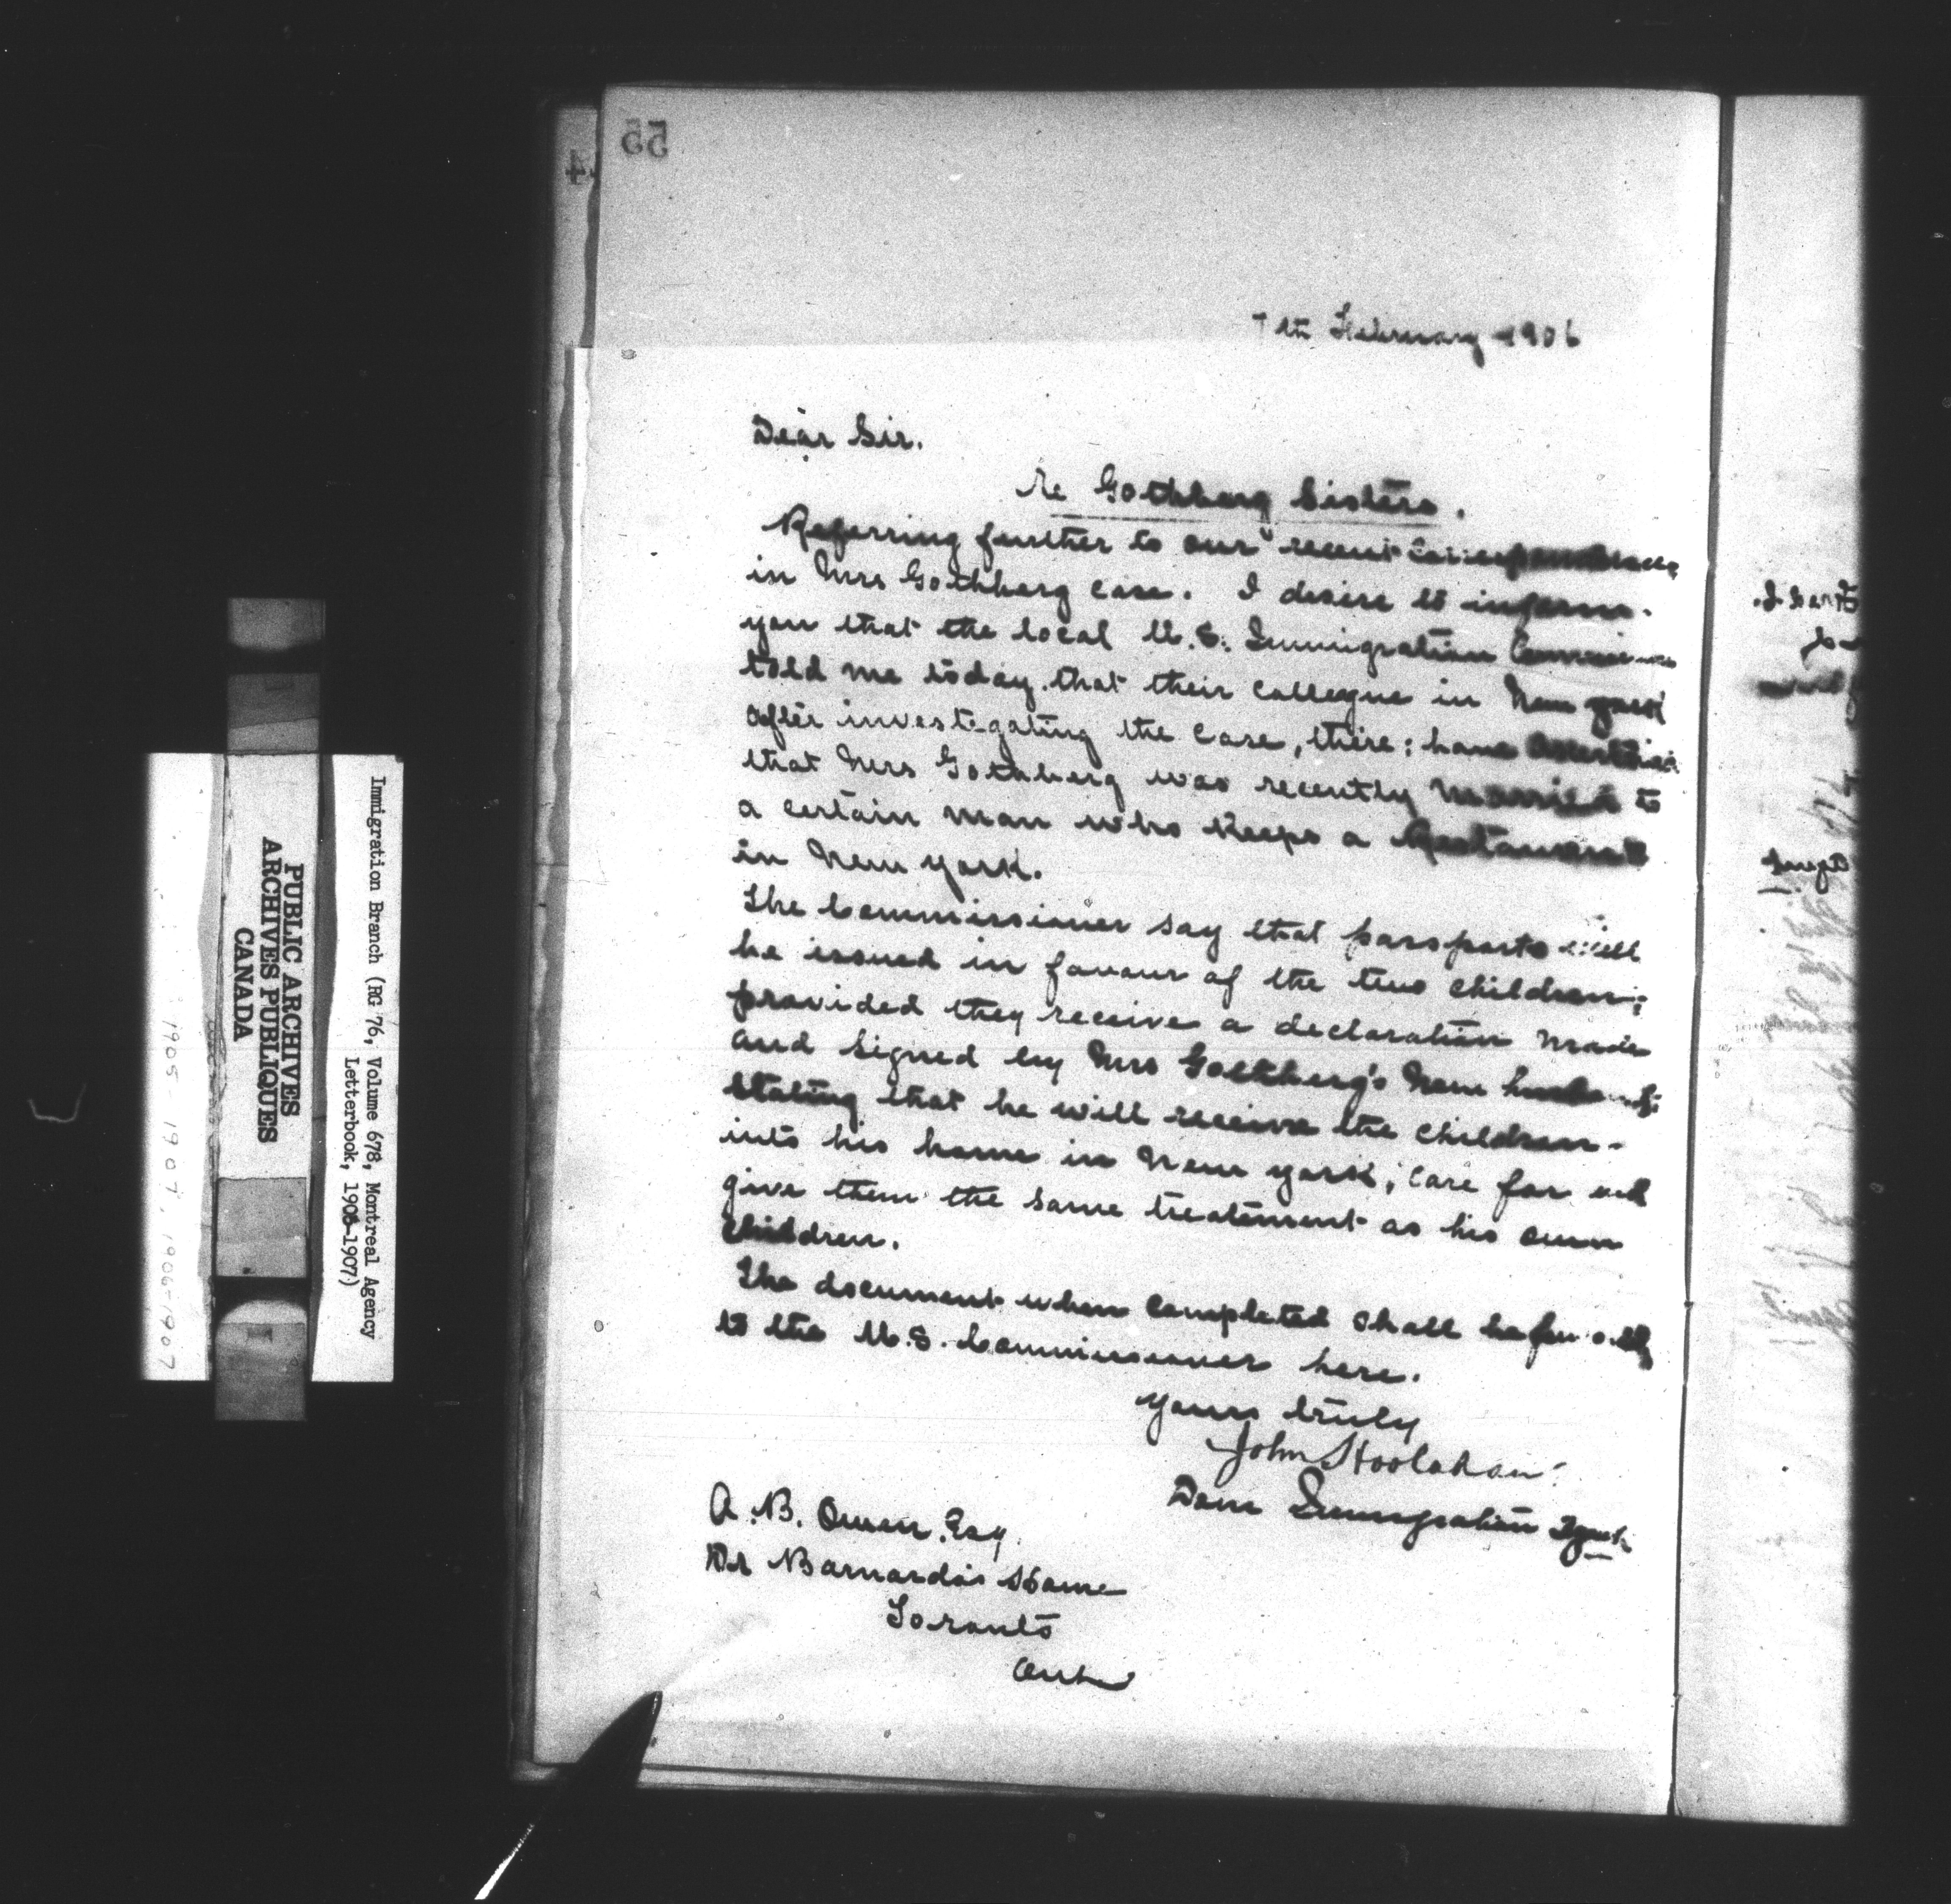 55
4
7th February 1906
Dear Sir.
Re Gothberg Sisters.
Referring further to our recent correspondence
in Mrs Gothberg case. I desire to inform
you that the local U.S. Immigration
told me today that their Colleague in New York
after investigating the case, there; have
that Mrs Gothberg was recently married to
a certain man who keeps a Restaurant
in New York.
The Commissioner say that passports will
be issued in favour of the two children;
provided they receive a declaration made
and signed by Mrs Gothberg's New husband;
stating that he will receive the children
into his home in New York; care for and
give them the same treatment as his own
children.
The document when completed shall be
to the U.S. Commissioner here.
Yours truly
John Hoolahan
Dom Immigration Agent
A. B. Owen. Esq.
Dr Barnardo's Home
Toronto
Ont
Immigration Branch (RG 76, Volume 678, Montreal Agency
Letterbook, 1905-1907)
PUBLIC ARCHIVES
ARCHIVES PUBLIQUES
CANADA
1905-1907, 1906-1907